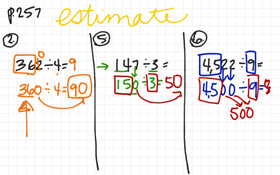 p257 estimate
② ⑤ ⑥
0
362÷4=9
360÷4=90
→ 147÷3=
150÷3=50
4,522÷9=
4,500÷9=
500